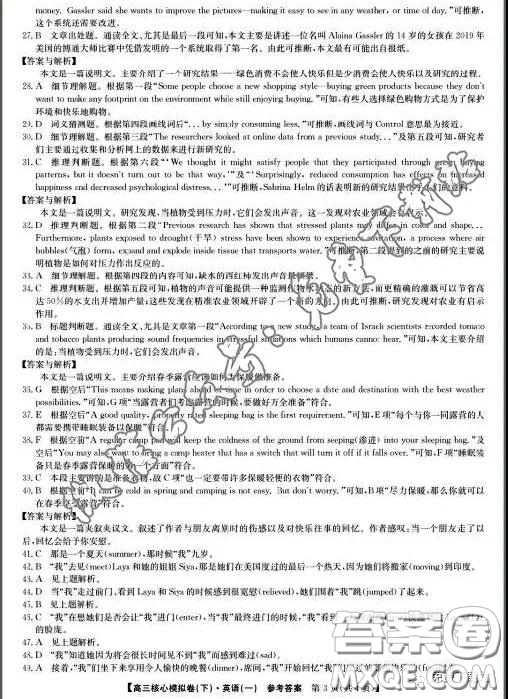 money. Gassler said she wants to improve the pictures—making it easy to see in any way, or any weather."可推断,
这个系统还需改进。
27. B 文章出处题。通读全文,尤其是最后一段可知,本文主要是讲述一位名叫 Alaina Gassler 的 14 岁的女孩在 2019 年
美国的博通大师比赛中凭借发明的一个系统取得了第一名。由此可推断,本文最有可能出自报纸。
【答案与解析】
本文是一篇说明文。主要介绍了一个研究结果——绿色消费不会使人快乐但是少消费会使人快乐以及研究的过程。
28. A 细节理解题。根据第一段"Some people choose a new shopping style—buying green products because they don't
want to make any footprint on the environment while still enjoying buying."可知,有些人选择绿色购物方式是为了保护
环境和快乐地购物。
29. D 词义猜测题。根据第四段画线词后"... by simply consuming less."可推断,画线词与 Control 意思最为接近。
30. D 细节理解题。根据第三段"The researchers looked at online data from a previous study..."及第五段可知,研究者
们主要通过收集和分析网上的数据来进行新研究的。
31. C 推理判断题。根据第六段"'We thought it might satisfy people that they participated through green buying
patterns, but it doesn't turn out to be that way.'"及"'Surprisingly, reduced consumption has effects on increased
happiness and decreased psychological distress...'"可推断,Sabrina Helm 的话表明新的研究结果出乎人们的意料。
【答案与解析】
本文是一篇说明文。研究发现,当植物受到压力时,它们会发出声音。这一发现对农业领域会有启示。
32. D 推理判断题。根据第二段"Previous research has shown that stressed plants may differ in color and shape...
Furthermore, plants exposed to drought(干旱) stress have been shown to experience cavitation, a process where air
bubbles(气泡) form, expand and explode inside tissue that transports water."可推断,第二段提到的之前的研究主要说
明植物是如何对压力作出反应的。
33. A 细节理解题。根据第四段的内容可知,缺水的西红柿发出声音最频繁。
34. C 推理判断题。根据第五段可知,植物声音可能提供一种监测作物水状态的新方法,而更精确的灌溉可以节省高
达 50%的水支出并增加产量;这些发现在精准农业领域开辟了一个新的方向。由此可推断,研究发现对农业有启示
作用。
35. B 标题判断题。通读全文,根据第一段"According to a new study, a team of Israel scientists recorded tomato
and tobacco plants producing sound frequencies in stressful situations which humans cannot hear."可知,本文主要讲
的是:当植物受到压力时,它们会发出声音。
【答案与解析】
本文是一篇说明文。主要介绍春季露营应该如何为保暖做准备。
36. G 根据空后"This means making plans ahead of time in order to choose a date and destination with the best weather
possibilities."可知,G 项"当露营者们考虑露营时,要做好万全准备"符合。
37. E 根据空后"A good quality, properly rated sleeping bag is the first requirement."可知,E 项"每个与你一同露营的人
都需要携带睡眠装备以保暖"符合。
38. F 根据空前"A good pad will keep the coldness of the ground from seeping(渗进) into your sleeping bag."及
空后"You may also want to bring a camp heater that has a switch that will turn it off if it falls over."可知,F 项"睡眠装
备只是春季露营保暖的第一个方面"符合。
39. C 本段主要讲的是准备衣物,故 C 项"也一定要带许多保暖轻便的衣物"符合。
40. B 根据空前"It can be cold in spring and camping is not easy. But don't worry."可知,B 项"尽力保暖,那么你就可以
在春季享受露营"符合。
【答案与解析】
本文是一篇夹叙夹议文。叙述了作者与朋友离别时的伤感以及对快乐往事的回忆。当一个朋友走了以
后,回忆会给予你安慰。
41. C 那是一个夏天(summer),那时候"我"九岁。
42. B "我"去见(meet)Laya 和她的姐姐 Siya,那是她们在美国度过的最后一个热天,因为她们要搬家(moving)到印度。
43. A 见上题解析。
44. D 当"我"走过前门,看到她们小时候的样子时感到很宽慰(relieved),她们围着"我"跳(jumped)了起来。
45. B 见上题解析。
46. C "我"在想她们是否会让"我"进门(enter),当"我"最终进到屋内时,
的脸庞。
47. A 见上题解析。
48. D 当"我们"一起走出屋子时,"我"不禁因为"我们"的离别而感到难过(sad)。
49. D 接着,"我"想起"我们"一起度过的
【高三核心模拟卷(下)·英语(一) 参考答案 第 3
答案圈